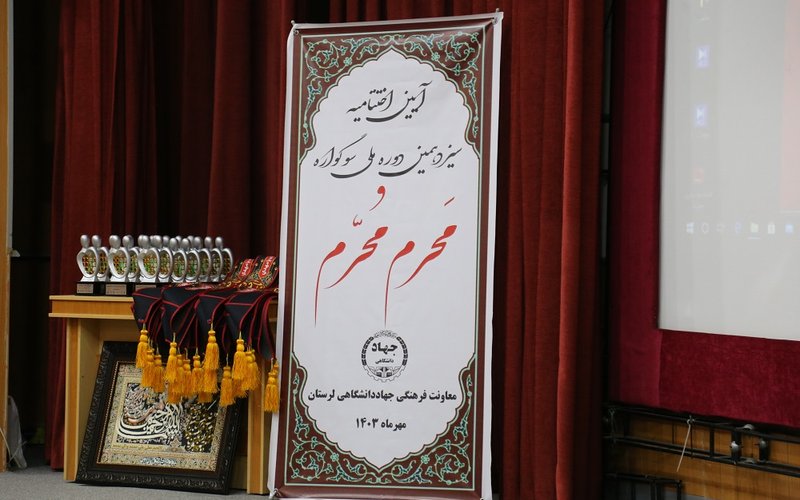 آیین اختتامیه
سیزدهمین دوره ملی سوگواره
و
مَحرم محرّم
جهاد
دانشگاهی
معاونت فرهنگی جهاددانشگاهی لرستان
مهرماه ۱۴۰۳